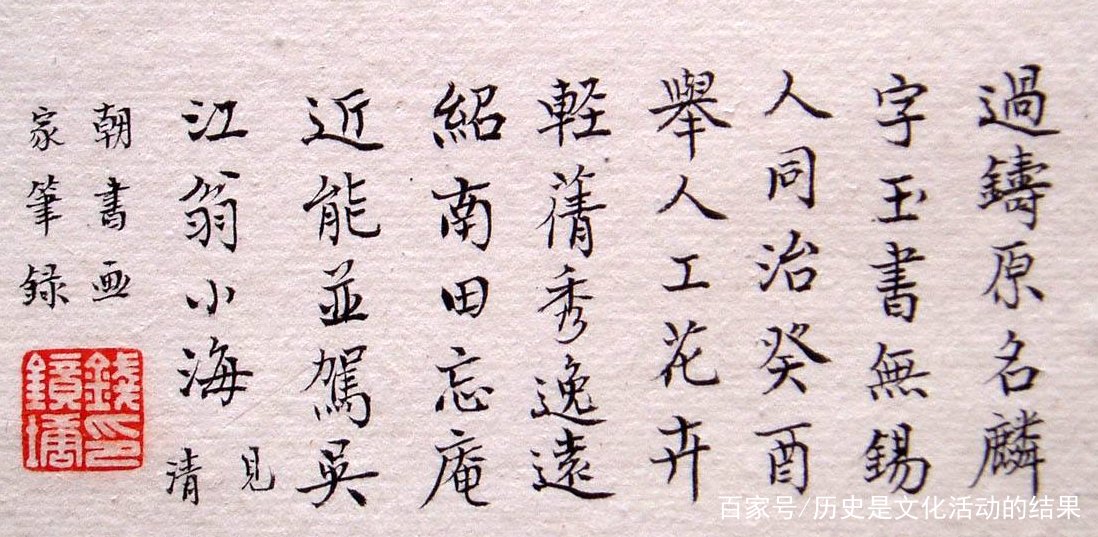 過鑄原名麟
字玉書無錫
人同治癸酉
舉人工花卉
軽蒨秀逸遠
紹南田忘庵
近能並駕吳
江翁小海
見清
朝書画
家筆録
錢鏡塘印
百家号/历史是文化活动的结果